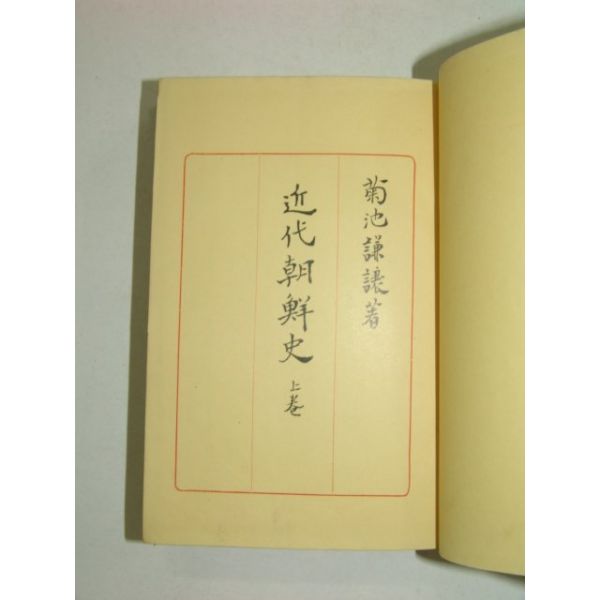 菊池謙讓著
近代朝鮮史 上卷